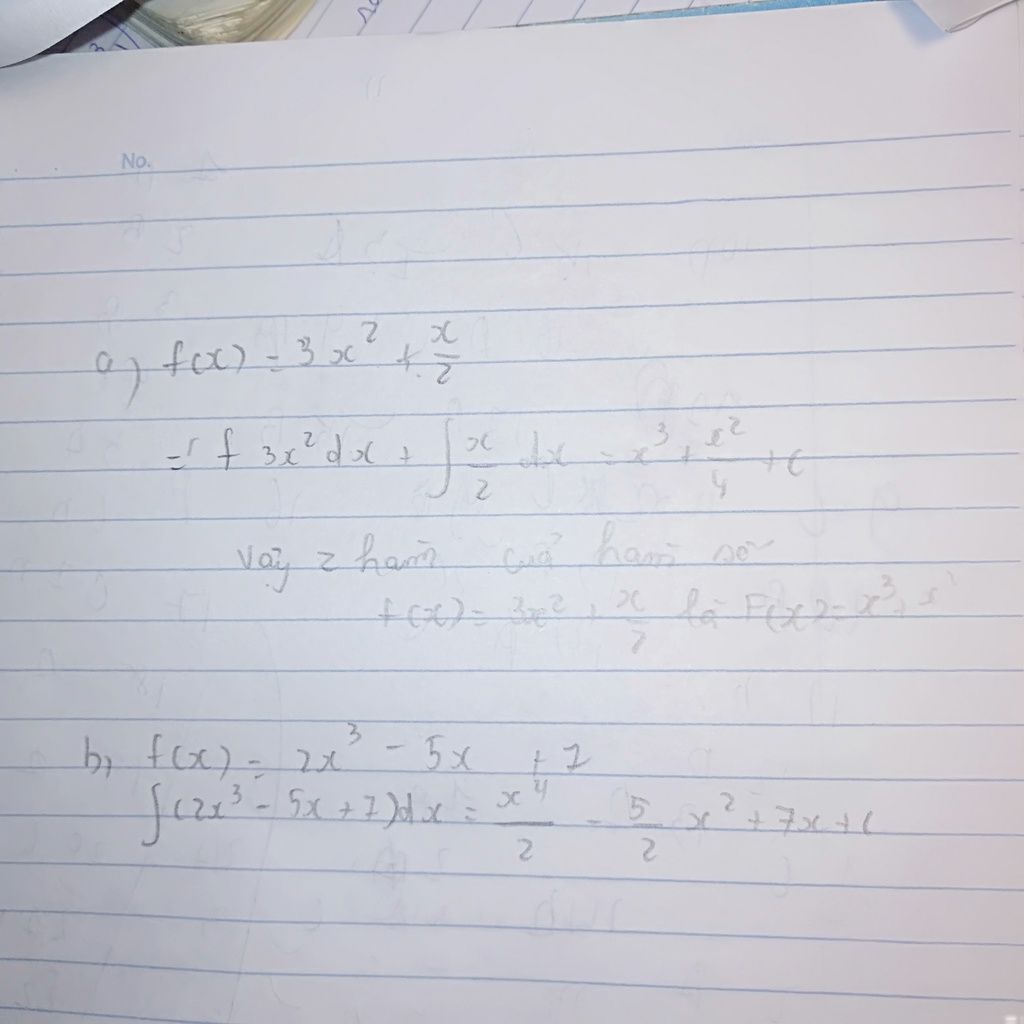 No.
a) f(x) = 3x² + x/2
=) ∫ 3x² dx + ∫ x/2 dx = x³ + x²/4 + C
Vậy z hàm của hàm số
f(x) = 3x² + x/2 là F(x) = x³ +
b, f(x) = 2x³ - 5x + 7
∫(2x³ - 5x + 7)dx = x⁴/2 - 5/2 x² + 7x + C